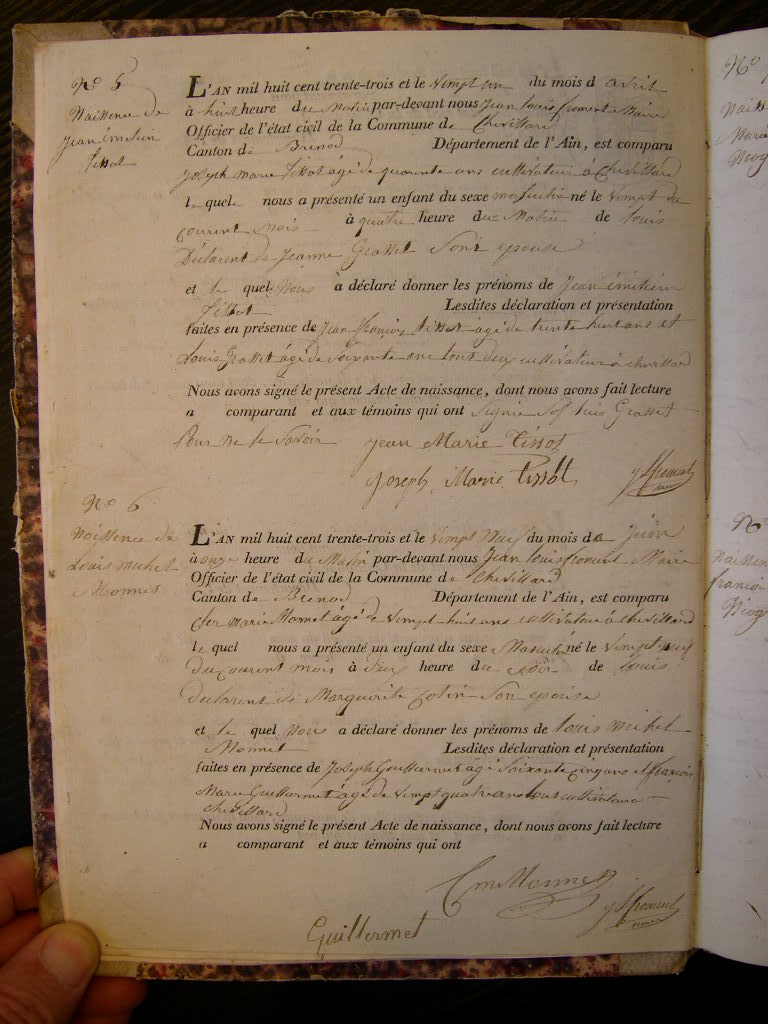 No 5
Naissence de
jean émilien
tissot
L'AN mil huit cent trente-trois et le vimpt un du mois d avril
à huit heure du Matin par-devant nous jean louis froment Maire
Officier de l'état civil de la Commune de Chevillard
Canton de Brenod Département de l'Ain, est comparu
joseph marie tissot âgé de quarente ans cultivateur à chevillard
le quel nous a présenté un enfant du sexe masculin né le vimpt du
courent mois à quatre heure du Matin de louis
Déclarent de jeanne Grasset Son épouse
et le quel Nous a déclaré donner les prénoms de jean émilien
tissot Lesdites déclaration et présentation
faites en présence de jean françois tissot âgé de trente huit ans et
Louis Grasset âgé de Soixante ans tout deux cultivateur à chevillard
Nous avons signé le présent Acte de naissance, dont nous avons fait lecture
a comparant et aux témoins qui ont Signié Sof luis Grasset
Pour Ne le Savoir jean Marie tissot
joseph Marie tissot jLfroment
No 6
Noissence de
Louis michel
Monnet
L'AN mil huit cent trente-trois et le vimpt Neuf du mois de juin
à onze heure du Matin par-devant nous jean louis froment Maire
Officier de l'état civil de la Commune de Chevillard
Canton de Brenod Département de l'Ain, est comparu
marie Monnet âgé de vimpt huit ans cultivateur à chevillard
le quel nous a présenté un enfant du sexe Masculin né le vimpt neuf
du courent mois à deux heure du soir de louis
Déclarent de Marguerite Cotin Son épouse
et le quel Nous a déclaré donner les prénoms de louis michel
Monnet Lesdites déclaration et présentation
faites en présence de joseph Guillermet âgé Soixante cinq ans et françois
Marie Guillermet âgé de vimpt quatre ans tous cultivateur a
chevillard
Nous avons signé le présent Acte de naissance, dont nous avons fait lecture
a comparant et aux témoins qui ont
Monnet jLfroment
Guillermet